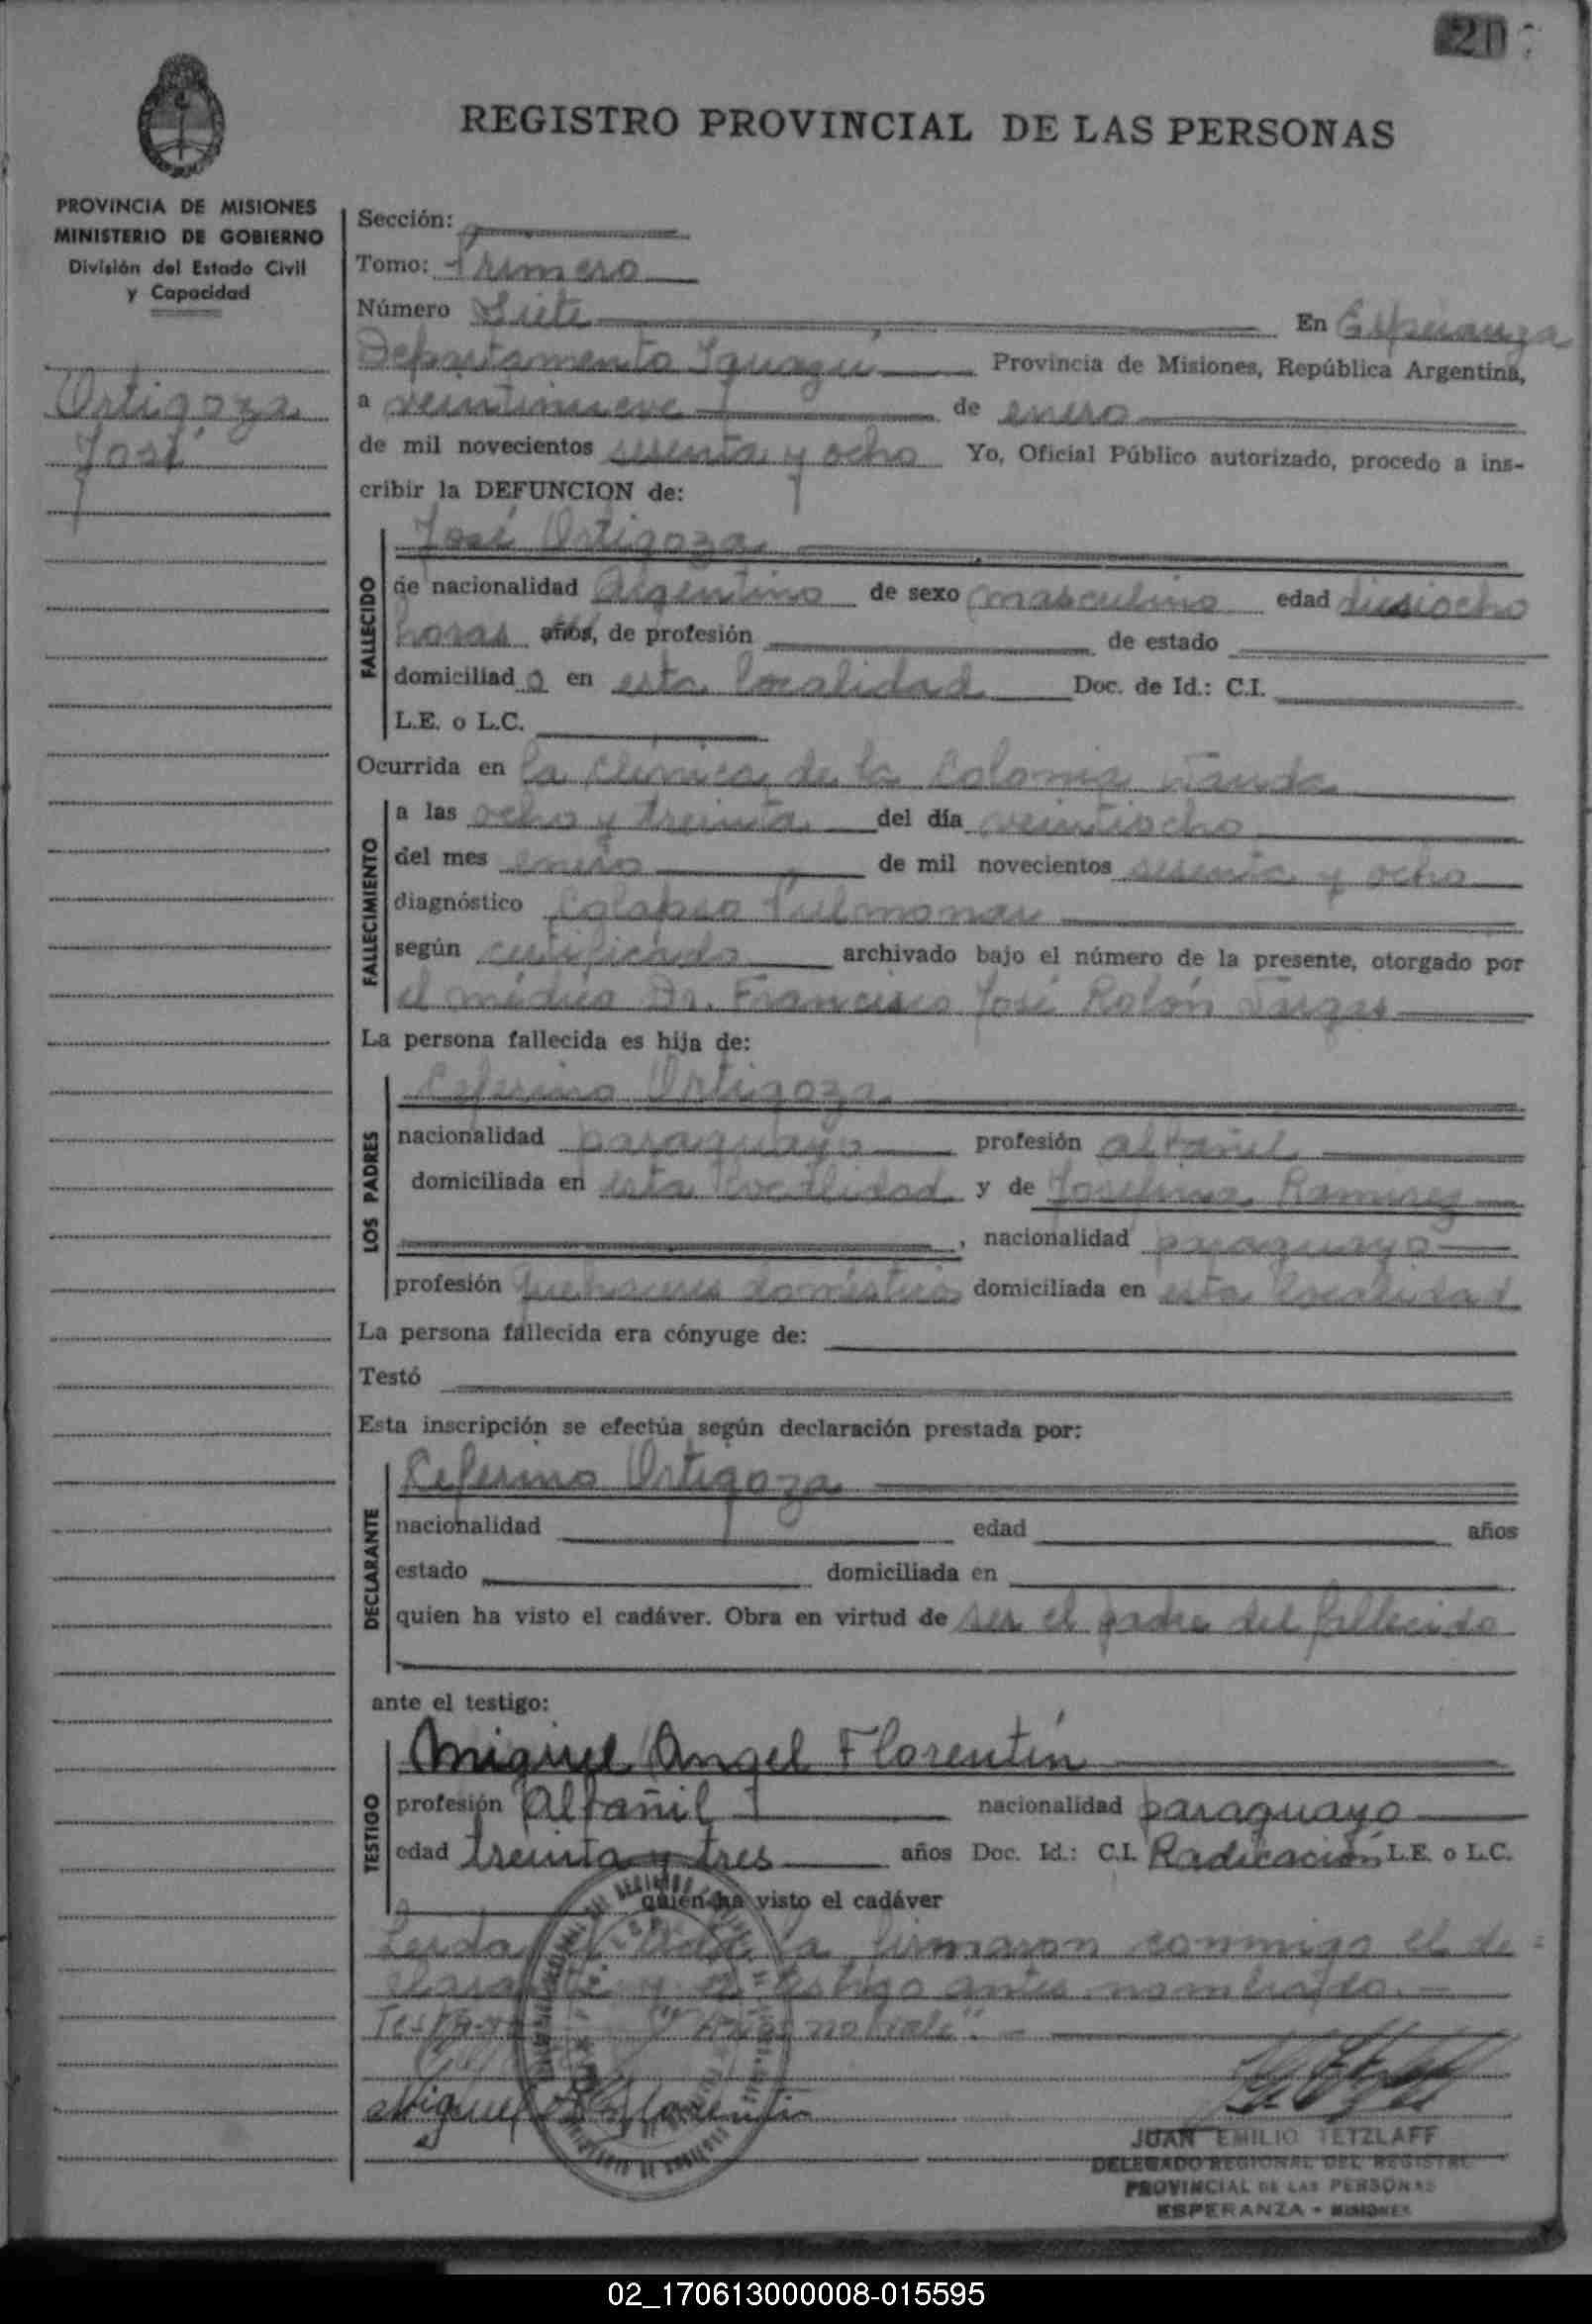 20
REGISTRO PROVINCIAL DE LAS PERSONAS
PROVINCIA DE MISIONES
MINISTERIO DE GOBIERNO
División del Estado Civil
y Capacidad
Ortigoza
José
Sección:
Tomo: Primero
Número Siete En Esperanza
Departamento Iguazú Provincia de Misiones, República Argentina,
a veintinueve de enero
de mil novecientos sesenta y ocho Yo, Oficial Público autorizado, procedo a ins-
cribir la DEFUNCION de:
José Ortigoza
FALLECIDO
de nacionalidad Argentino de sexo masculino edad diesiocho
horas años, de profesión de estado
domiciliad o en esta localidad Doc. de Id.: C.I.
L.E. o L.C.
Ocurrida en la Clínica de la Colonia Wanda
FALLECIMIENTO
a las ocho y treinta del día veintiocho
del mes enero de mil novecientos sesenta y ocho
diagnóstico Colapso Pulmonar
según certificado archivado bajo el número de la presente, otorgado por
el médico Dr. Francisco José Rolón Vargas
La persona fallecida es hija de:
LOS PADRES
Ceferino Ortigoza
nacionalidad paraguayo profesión albañil
domiciliada en esta localidad y de Josefina Ramirez
, nacionalidad paraguayo
profesión quehaceres domésticos domiciliada en esta localidad
La persona fallecida era cónyuge de:
Testó
Esta inscripción se efectúa según declaración prestada por:
DECLARANTE
Ceferino Ortigoza
nacionalidad edad años
estado domiciliada en
quien ha visto el cadáver. Obra en virtud de ser el padre del fallecido
ante el testigo:
TESTIGO
Miguel Angel Florentín
profesión Albañil nacionalidad paraguayo
edad treinta y tres años Doc. Id.: C.I. Radicación L.E. o L.C.
quien ha visto el cadáver
Leida el acta la firmaron conmigo el de=
clarante y el testigo antes nombrado.-
Testado "años no vale".-
Miguel A Florentin
JUAN EMILIO TETZLAFF
DELEGADO REGIONAL DEL REGISTRO
PROVINCIAL DE LAS PERSONAS
ESPERANZA - MISIONES
02_170613000008-015595